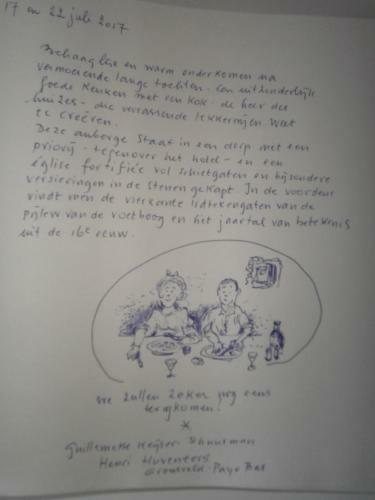 17 en 22 juli 2017
Behaaglijk en warm onderkomen na
vermoeiende lange tochten. Een uitzonderlijk
goede keuken met een kok - de heer des
huizes - die verrassende lekkernijen weet
te creëren.
Deze auberge staat in een dorp met een
priorij - tegenover het hotel - en een
église fortifiée vol schietgaten en bijzondere
versieringen in de stenen gekapt. In de voordeur
vindt men de vierkante lidtekengaten van de
pijlen van de voetboog en het jaartal van betekenis
uit de 16e eeuw.
We zullen zeker nog eens
terugkomen!
*
Guillemette Keyser-Schuurman
Henri Huveneers
Gronsveld - Pays Bas